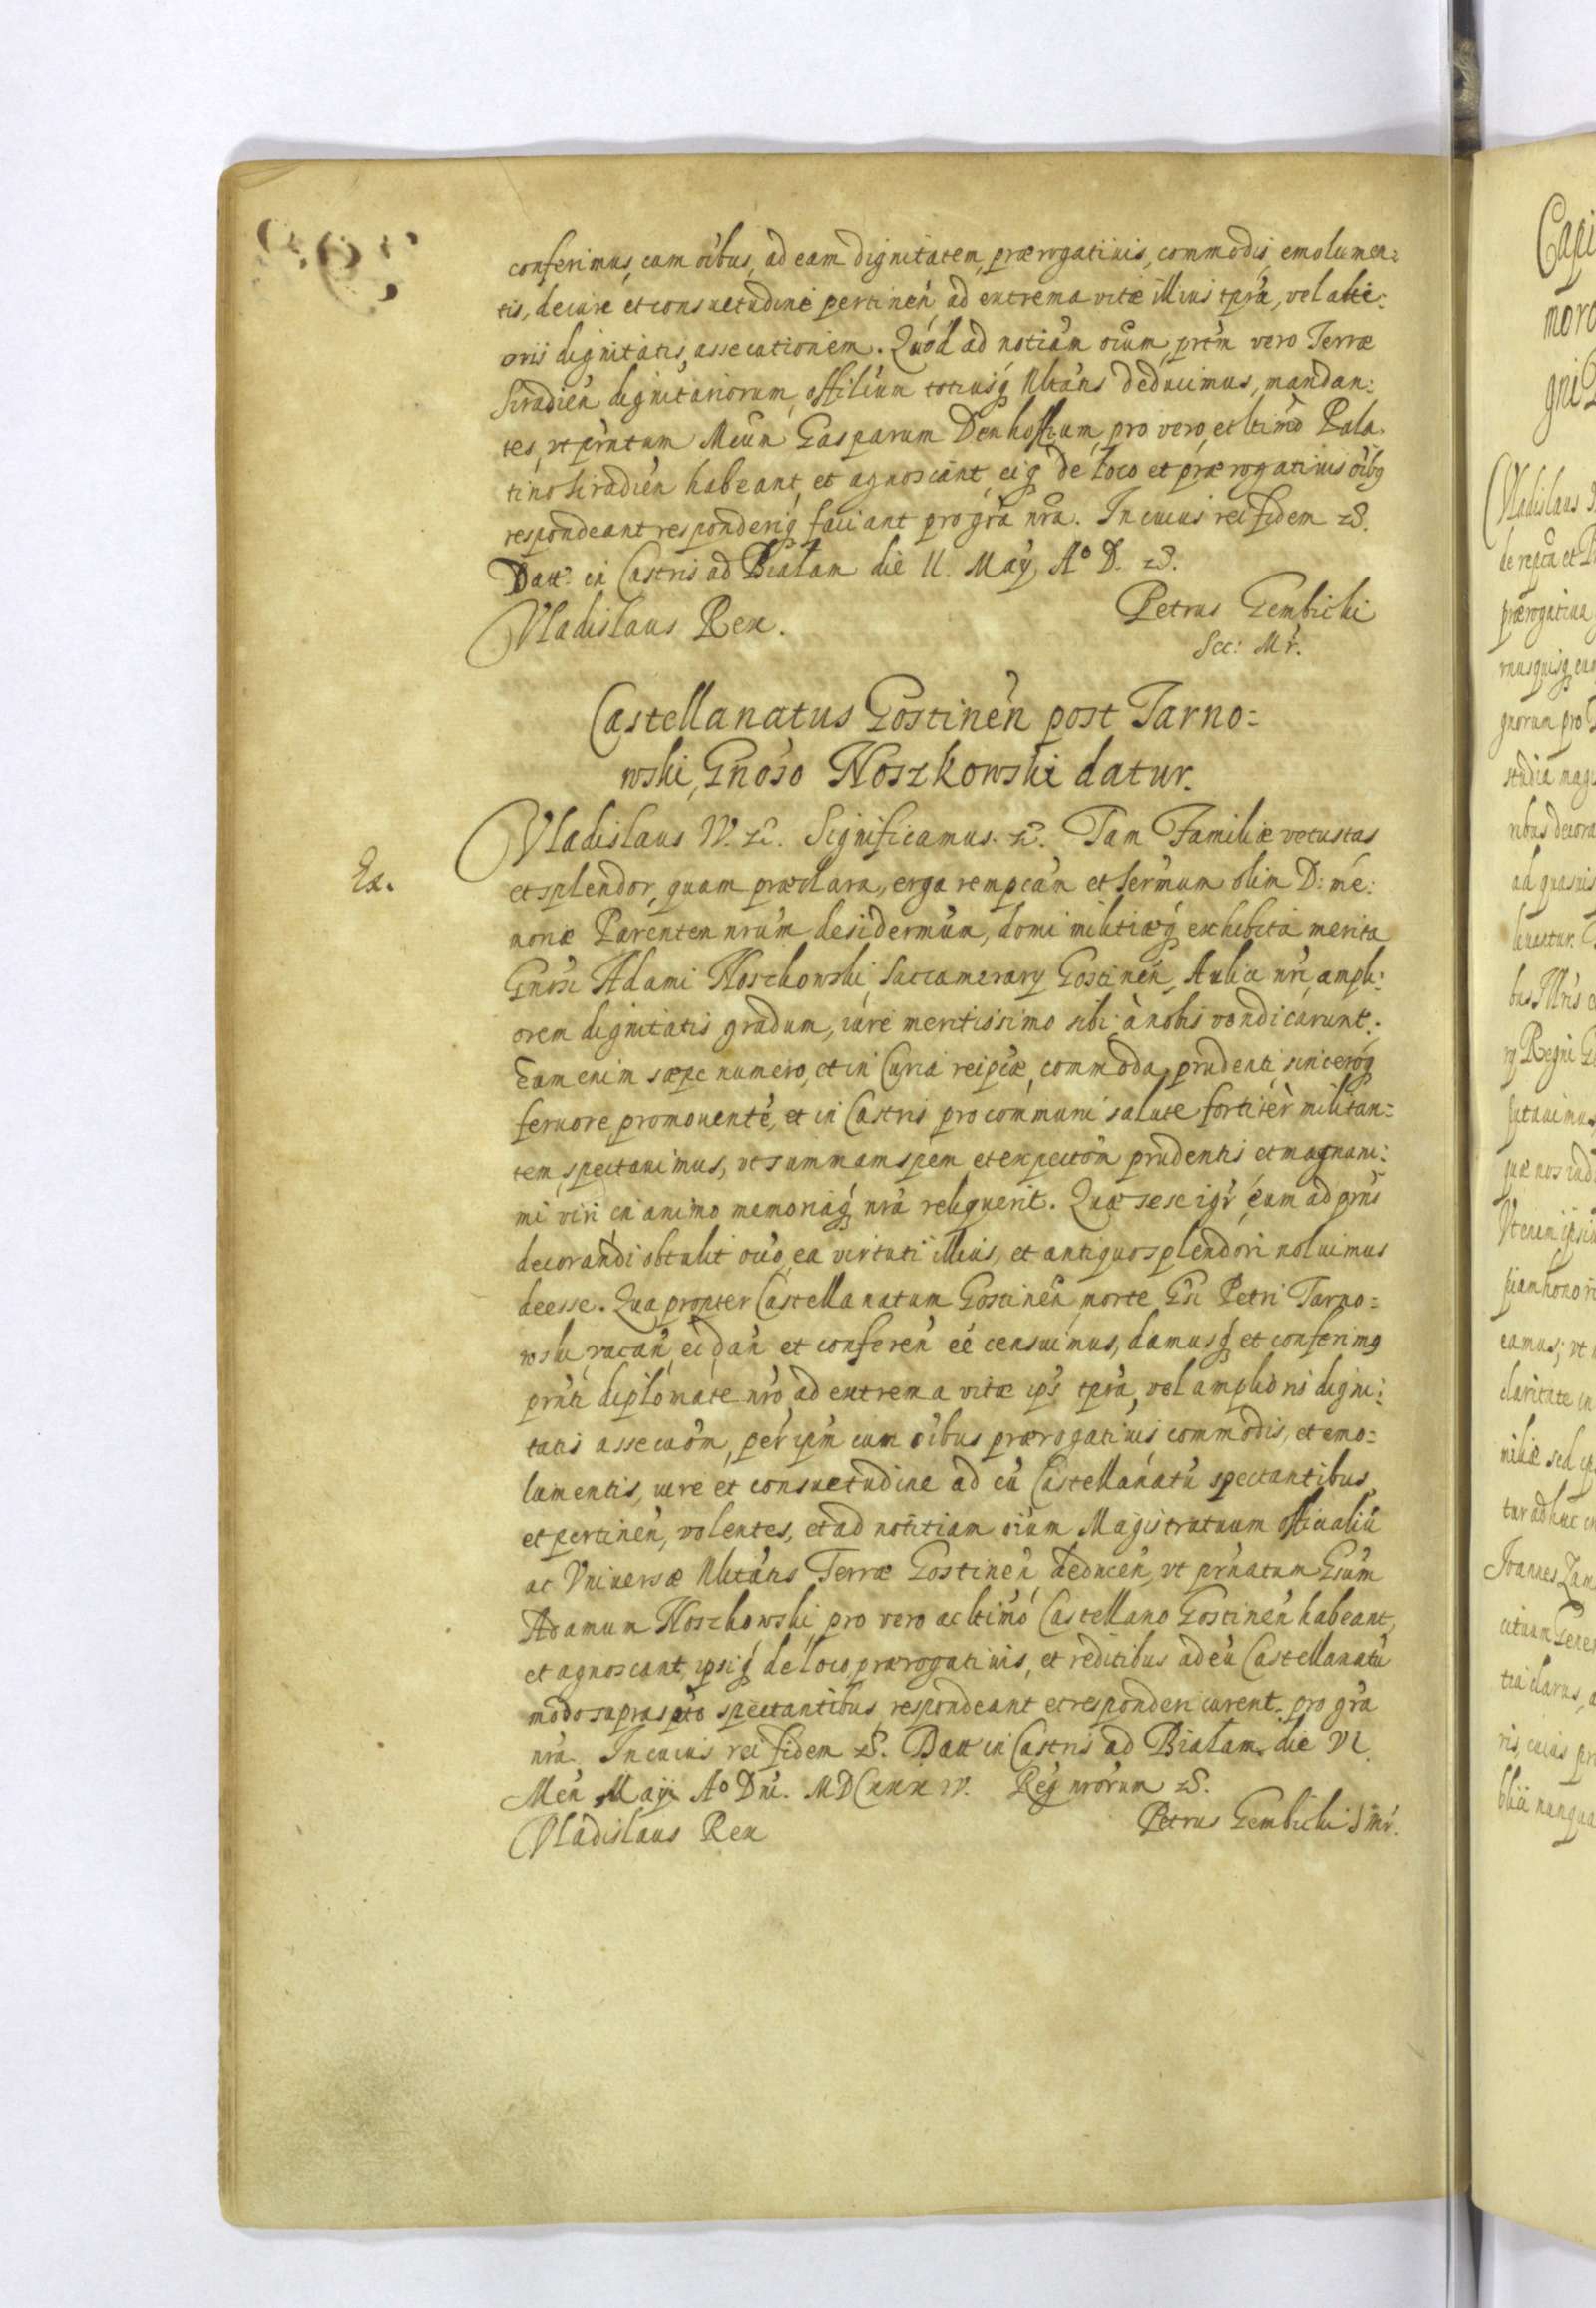 conferimus, cum oibus, ad eam dignitatem, prærogatiuis, commodis, emolumen=
tis, de iure et consuetudine pertinen, ad extrema vitæ illius tpra, vel alti=
oris dignitatis, assecutionem. Quod ad notiam oium, prtm vero Terræ
Siradien dignitariorum, offilium totiusq Nltatis deducimus, mandan:
tes, vt prntum Mcum Gasparum Denhoffium, pro vero, et ltimo Pala.
tino Siradien habeant, et agnoscant, eiq de loco et prærogatiuis oibq
respondeant responderiq faciant pro gra nra. In cuius rei fidem &.
Datt: in Castris ad Białam die II. Maÿ, Aº D. &.
Vladislaus Rex.
Petrus Gembicki
Sec: Mr.
Castellanatus Gostinen post Tarno=
wski, Gnoso Noszkowski datur.
Ex.
Vladislaus IV. &. Significamus. &. Tam Familiæ vetustas
et splendor, quam præclara, erga rempcam et Sermum olim D: me:
moriæ Parentem nrum desidermum, domi militiæq exhibita merita
Gnosi Adami Noszkowski, Succamerarij Gostinen, Aulici nri, ampli:
orem dignitatis gradum, iure meritissimo sibi à nobis vendicarunt.
Eum enim sæpe numero, et in Curia reipcæ, commoda, prudenti, sinceroq
feruore promouente, et in Castris pro communi salute fortiter militan=
tem spectauimus, vt summam spem et expectom prudentis et magnani:
mi viri in animo memoriaq nra reliquerit. Quæ sese igr eum ad prns
decorandi obtulit occo, ea virtuti illius, et antiquo splendori noluimus
deesse. Quapropter Castellanatum Gostinen morte Gsi Petri Tarno=
wski vacan, ei dan et conferen ee censuimus, damusq et conferimq
prnti diplomate nro, ad extrema vitæ ips tpra, vel amplioris digni:
tatis assecuom, per ipm cum oibus prærogatiuis, commodis, et emo=
lumentis, iure et consuetudine ad eu Castellanatu spectantibus,
et pertinen, volentes, et ad notitiam oium Magistratuum officialiu
ac Vniuersæ Nlitatis Terræ Gostinen deducen, vt prnatum Gsum
Adamum Noszkowski, pro vero ac ltimo Castellano Gostinen habeant,
et agnoscant, ipsiq de loco, prærogatiuis, et reditibus ad eu Castellanatu
modo suprascto spectantibus, respondeant et responderi curent. pro gra
nra. In cuius rei fidem &. Datt in Castris ad Białam die VI.
Men Maÿi Aº Dni. MDCXXXIV. Reg nrorum &.
Vladislaus Rex
Petrus Gembicki S mr.